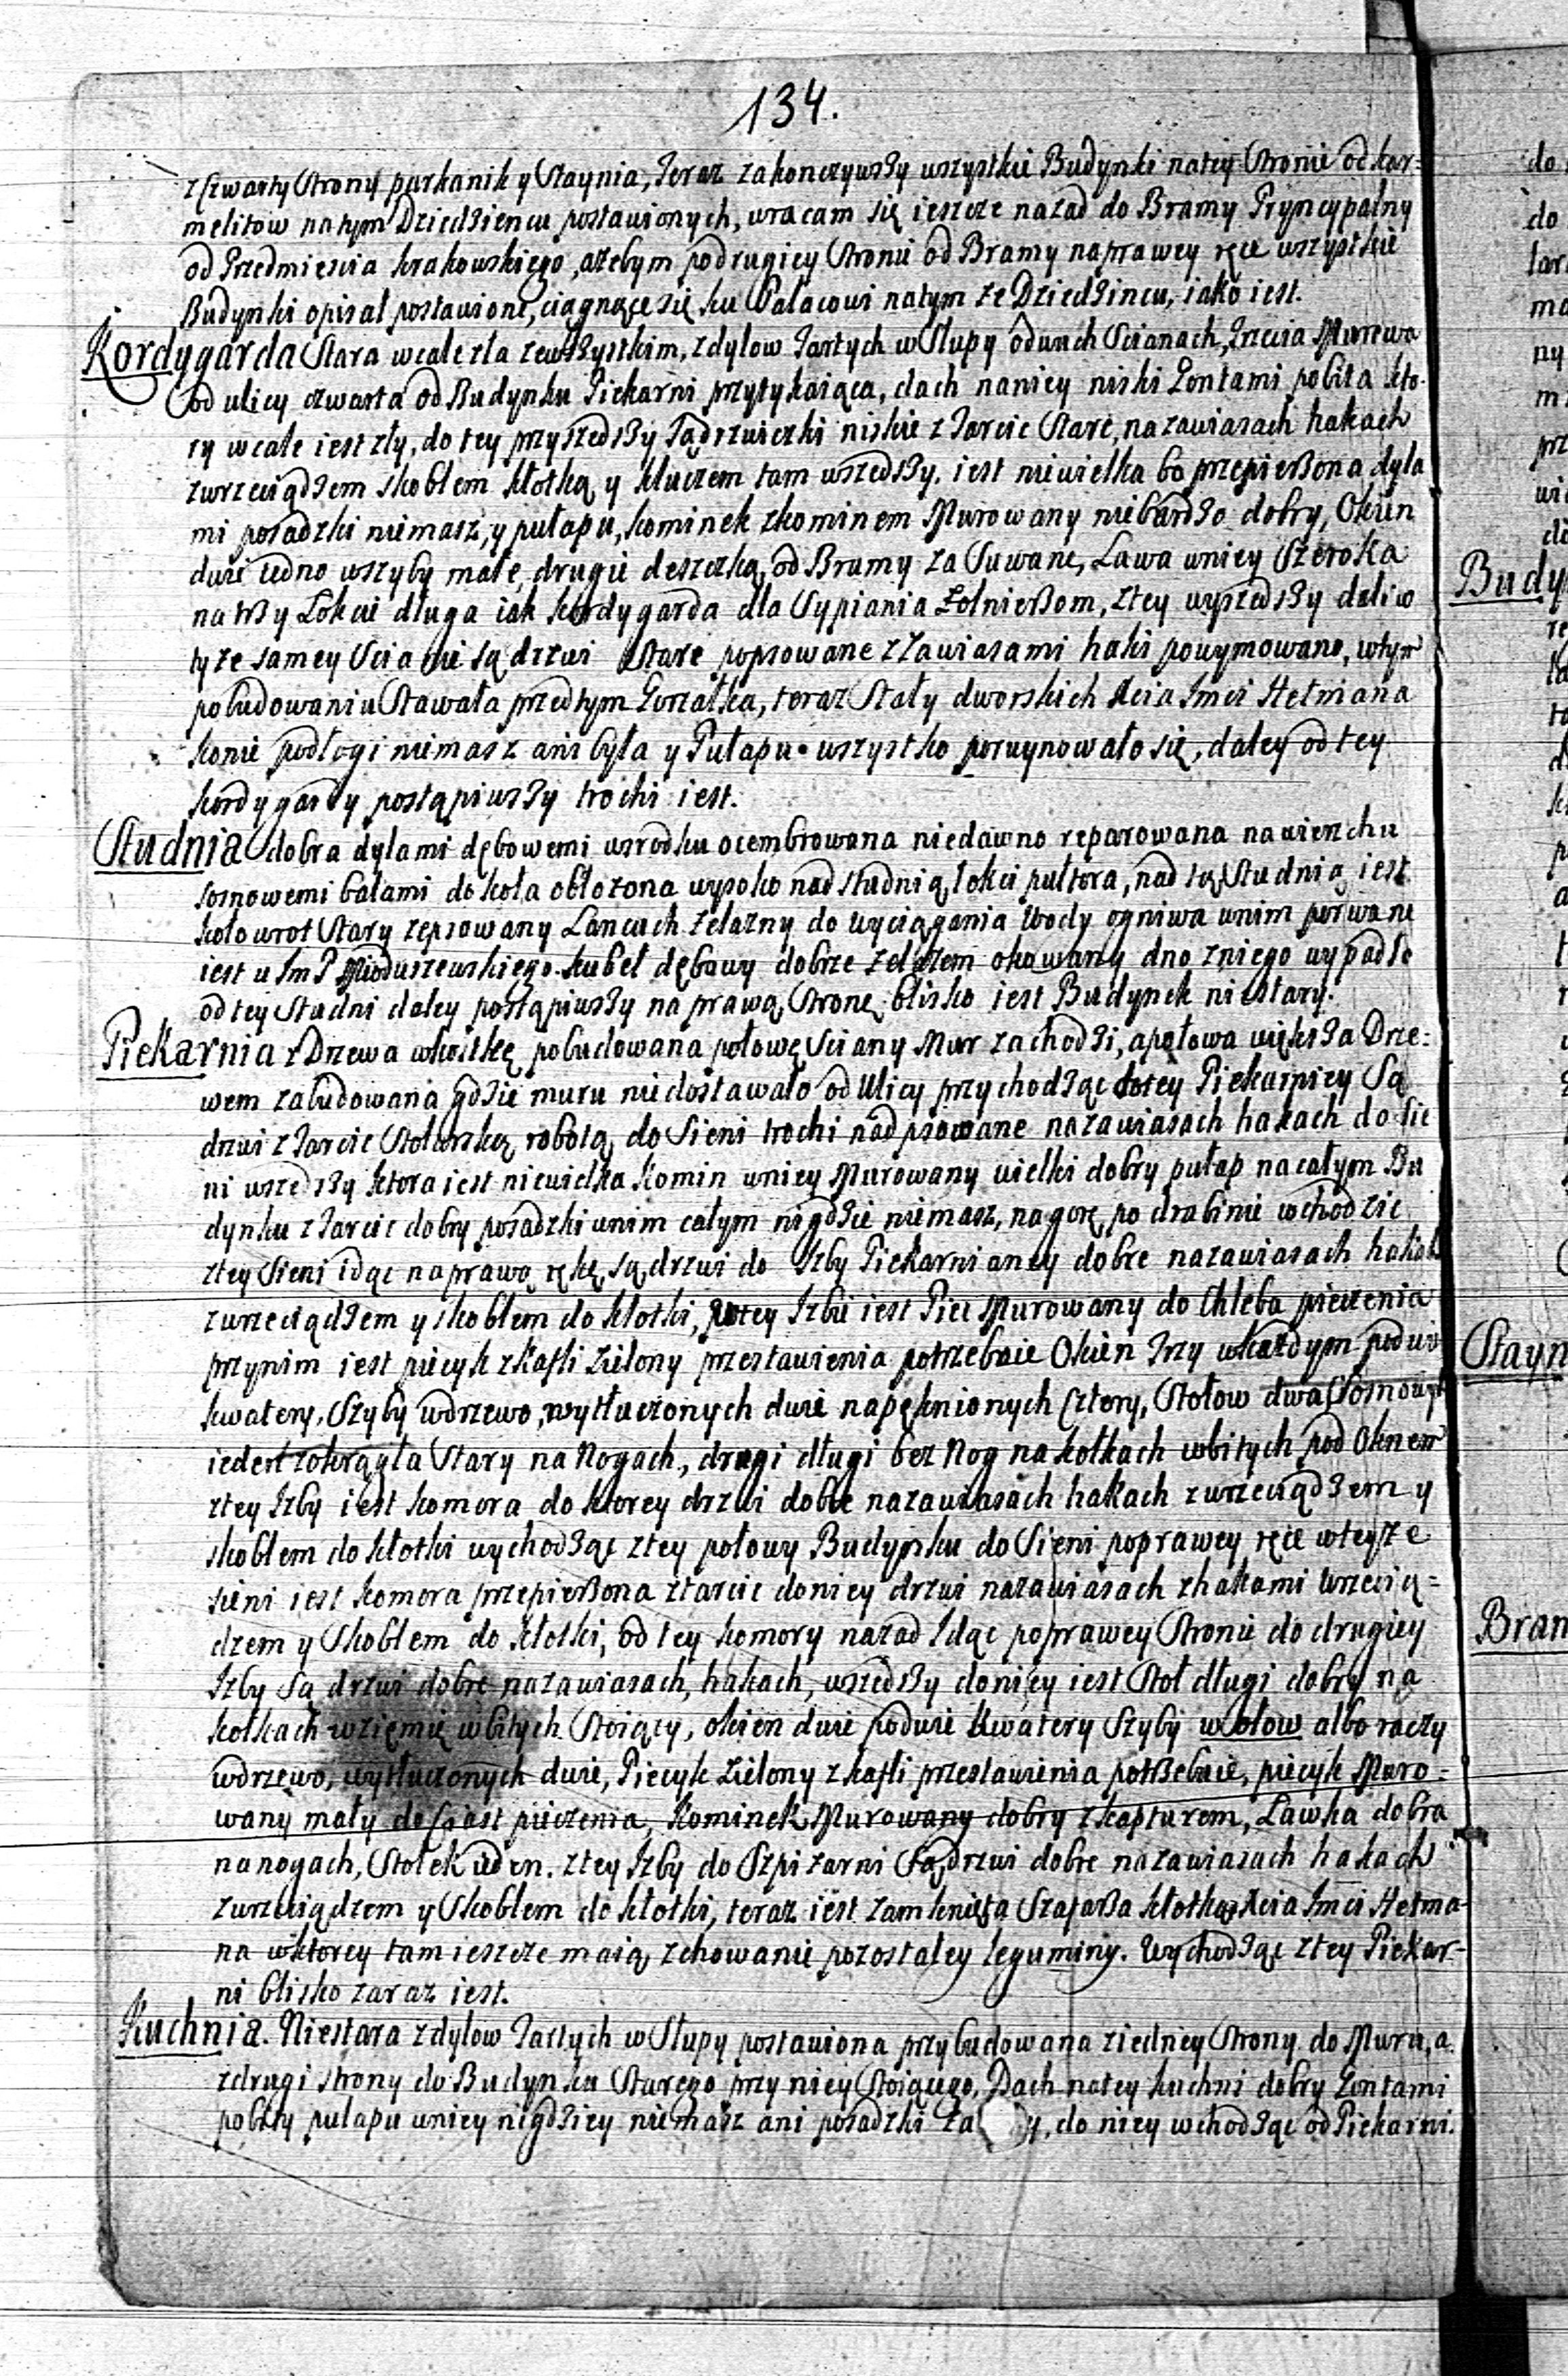 134.
z Czwarty Strony parkanik y Staynia, Teraz zakonczywszy wszystkie Budynki na tey Stronie od kar=
melitow na tym Dziedziencu postawionych, wracam się ieszcze nazad do Bramy Pryncypalny
od Przedmiescia krakowskiego, ażebym po drugiey Stronie od Bramy na prawey ręce wszystkie
Budynki opisał postawione, ciągnące się ku Pałacowi na tym ze Dziedzincu, iako iest.
Kordygarda Stara wcale zła zewszystkim, z dylow Tartych w Słupy o dwuch Scianach, Trzecia Murowa
od ulicy czwarta od Budynku Piekarni przytykaiąca, dach na niey niski Gontami pobita kto-
ry wcale iest zły, do tey przyszedszy są drzwiczki niskie z Tarcic Stare, na zawiasach hakach
z wrzeciądzem skoblem kłotką y kluczem tam wszedszy, iest niewielka bo przepierzona dyla
mi posadzki niemasz, y pułapu, kominek z kominem Murowany niebardzo dobry, Okien
dwie iedno w szyby małe, drugie deszczką od Bramy za Suwane, Ława w niey Szeroka
na trzy Łokcie długa iak kordygarda dla Sypiania Zołnierzom, z tey wyszedszy dali w
tyze samey Scianie są drzwi Stare popsowane z Zawiasami haki powymowane, w tym
pobudowaniu Stawała przedtym Gorzałka, teraz Stały dworskich Xcia Jmci Hetmana
konie podłogi niemasz ani była y Pułapu wszystko poruynowało się, daley od tey
kordygardy postąpiwszy trochi iest.
Studnia dobra dylami dębowemi wsrodku ocembrowana niedawno reparowana na wierzchu
sosnowemi balami do koła obłożona wysoko nad studnią łokci pułtora, nad tą Studnią iest
kołowrot Stary zepsowany Łancuch żelazny do wyciągania Wody ogniwa w nim porwane
iest u JmP Mioduszewskiego. kubeł dębowy dobrze żelazem okowany dno z niego wypadło
od tey Studni daley postąpiwszy na prawą Stronę blisko iest Budynek niestary.
Piekarnia z Drzewa w kostkę pobudowana połowę Sciany Mur zachodzi, a połowa większa Drze=
wem zabudowana gdzie muru niedostawało od Ulicy przychodząc do tey Piekarniey Są
drzwi z Tarcic Stolarską robotą do Sieni trochi nadpsowane na zawiasach hakach do sie
ni wszedszy ktora iest niewielka Komin w niey Murowany wielki dobry pułap na całym Bu
dynku z Tarcic dobry posadzki w nim całym nigdzie niemasz, na gorę po drabinie wchodzic
z tey Sieni idąc na prawą rękę są drzwi do Izby Piekarnianey dobre na zawiasach hakach
z wrzeciądzem y skoblem do kłotki, w tey Izbie iest Piec Murowany do Chleba pieczenia
przy nim iest piecyk z kafli zielony przestawienia potrzebuie Okien Trzy w każdym po dwie
kwatery, Szyby w drzewo, wytłuczonych dwie napęknionych Cztery, Stołow dwa Sosnowych
ieden zokrągła Stary na Nogach, drugi długi bez Nog na kołkach wbitych pod Oknem
z tey Izby iest komora do ktorey drzwi dobre na zawiasach hakach z wrzeciądzem y
skoblem do kłotki wychodząc z tey połowy Budynku do Sieni po prawey ręce w teyże
sieni iest komora przepierzona z tarcic do niey drzwi na zawiasach z hakami wrzecią=
dzem y Skoblem do kłotki, od tey komory nazad Idąc po prawey Stronie do drugiey
Izby Są drzwi dobre na zawiasach, hakach, wszedszy do niey iest Stoł długi dobry na
kołkach w ziemię wbitych Stoiący, okien dwie po dwie kwatery Szyby w ołow albo raczy
w drzewo, wytłuczonych dwie, Piecyk zielony z kafli przestawienia potrzebuie, piecyk Muro=
wany mały do Ciast pieczenia, Kominek Murowany dobry z kapturem, Ławka dobra
na nogach, Stołek ieden. z tey Izby do Szpizarni Są drzwi dobre na zawiasach hakach
z wrzeciądzem y Skoblem do kłotki, teraz iest zamknięta Szafarza kłotką Xcia Jmci Hetma-
na w ktorey tam ieszcze maią zchowanie pozostałey Leguminy. Wychodząc z tey Piekar-
ni blisko zaraz iest.
Kuchnia. Niestara z dylow Tartych w Słupy postawiona przybudowana z iedney Strony do Muru, a
z drugi strony do Budynku Starego przy niey Stoiącego, Dach na tey kuchni dobry Gontami
pobity pułapu w niey nigdziey niemasz ani posadzki, do niey wchodząc od Piekarni.
do
do
Budy
Stayn
Bram